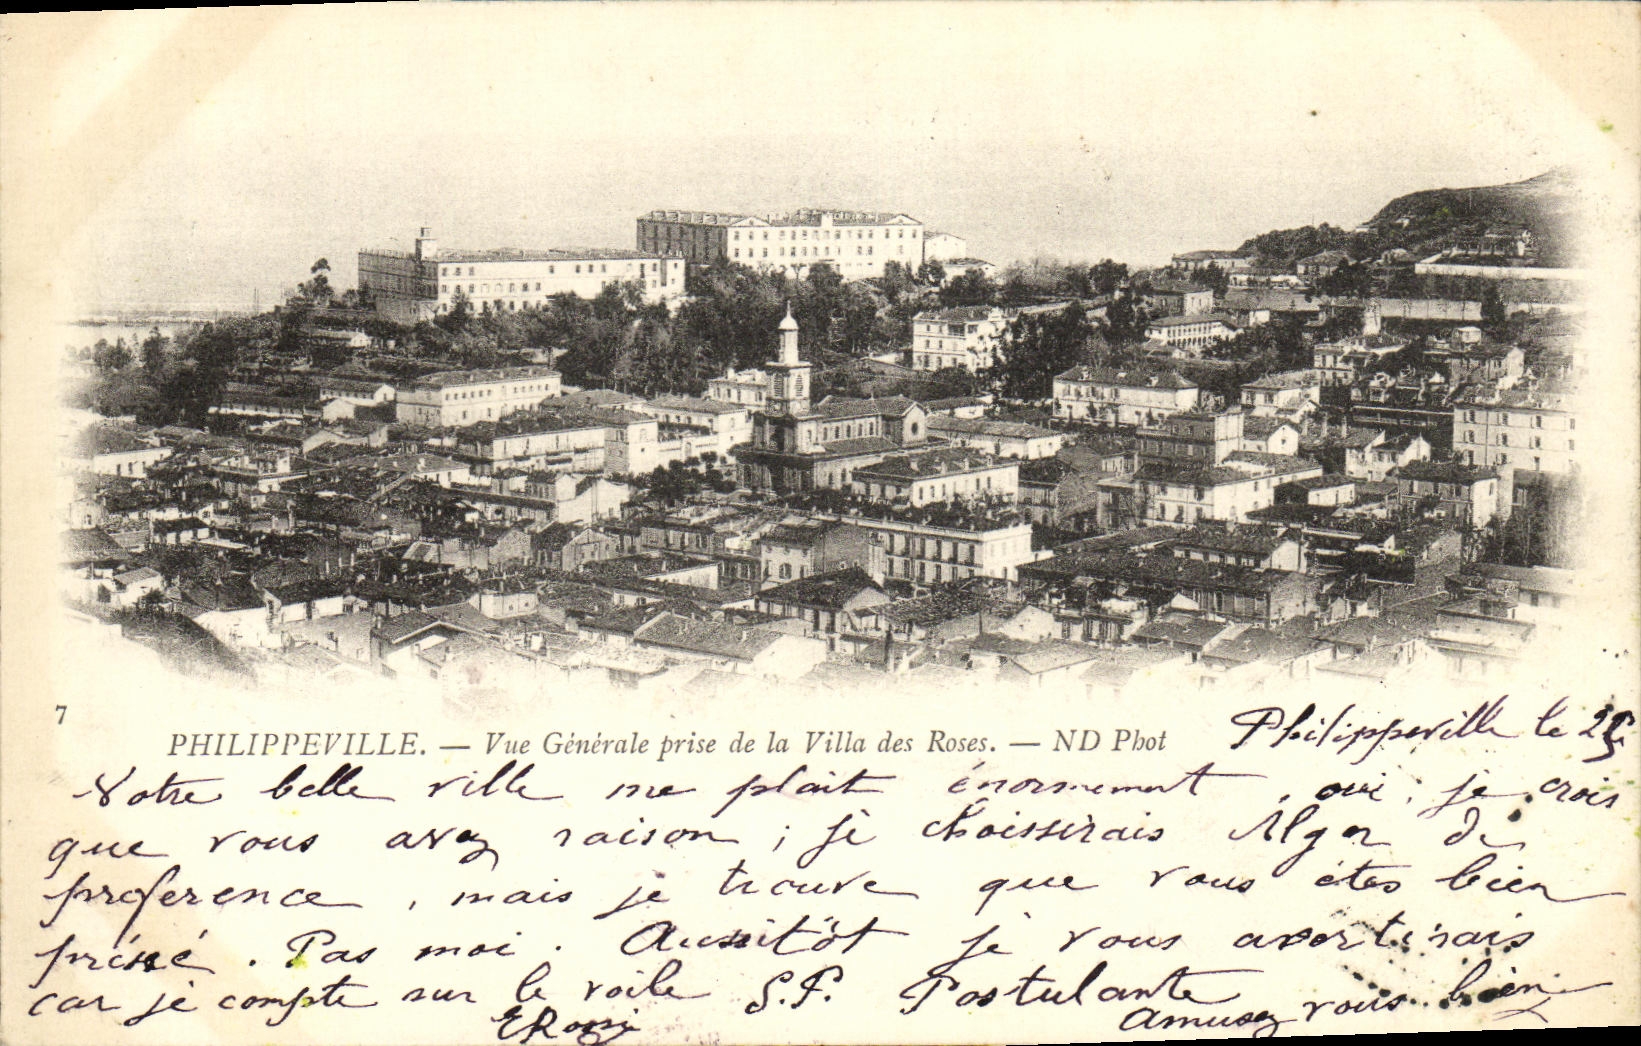 7
PHILIPPEVILLE. — Vue Générale prise de la Villa des Roses. — ND Phot
Philippeville le 25
Votre belle ville me plait énormement, oui, je crois
que vous avez raison ; je choissirais Alger de
preference, mais je trouve que vous étes bien
préssé. Pas moi. Aussitôt je vous avertirais
car je compte sur le voile S.P. Postulante
Amusez vous bien